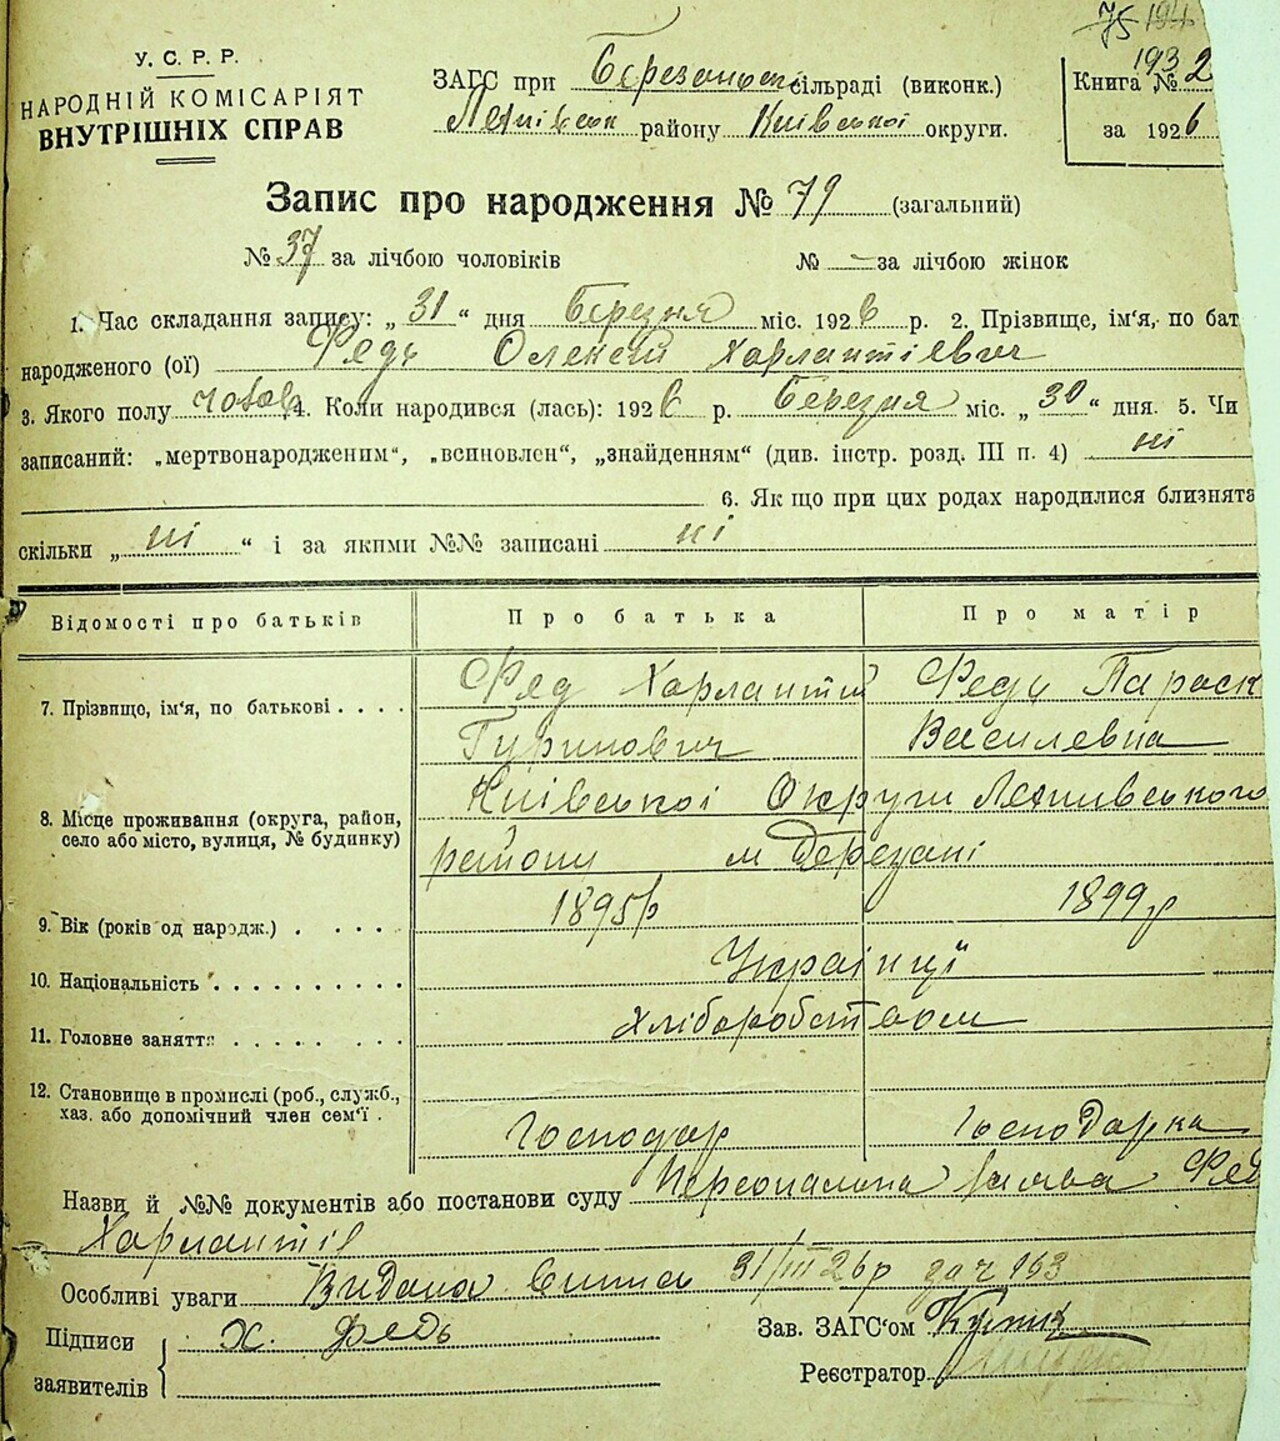 75
1932
У. С. Р. Р.
НАРОДНІЙ КОМІСАРІЯТ
ВНУТРІШНІХ СПРАВ
ЗАГС при Березанській сільраді (виконк.)
району Київської округи.
Книга № 2
за 1926
Запис про народження № 79 (загальний)
№ 37 за лічбою чоловіків № — за лічбою жінок
1. Час складання запису: „31“ дня Березня міс. 1926 р. 2. Прізвище, ім'я, по бат
народженого (ої) Федь Олексій Харлантієвич
3. Якого полу чолов 4. Коли народився (лась): 1926 р. Березня міс. „30“ дня. 5. Чи
записаний: „мертвонародженим“, „всиновлен“, „знайденням“ (див. інстр. розд. III п. 4) ні
6. Як що при цих родах народилися близнята
скільки „ні“ і за якими №№ записані ні
Відомості про батьків Про батька Про матір
7. Прізвище, ім'я, по батькові . . . . Фед Харлантій Федь Параск
Гуринович Василевна
8. Місце проживання (округа, район, село або місто, вулиця, № будинку) Київської Округи
району м Березані
9. Вік (років од народж.) . . . . 1895 р 1899 р
10. Національність . . . . . . . . . . Українці
11. Головне заняття . . . . . . . . Хліборобством
12. Становище в промислі (роб., служб.,
хаз. або допомічний член сем'ї .
Господар Господарка
Назви й №№ документів або постанови суду Персональна заява Фед
Харлантія
Особливі уваги Видана 31/III 26 р 163
Підписи Х. Федь
заявителів
Зав. ЗАГС'ом
Реєстратор